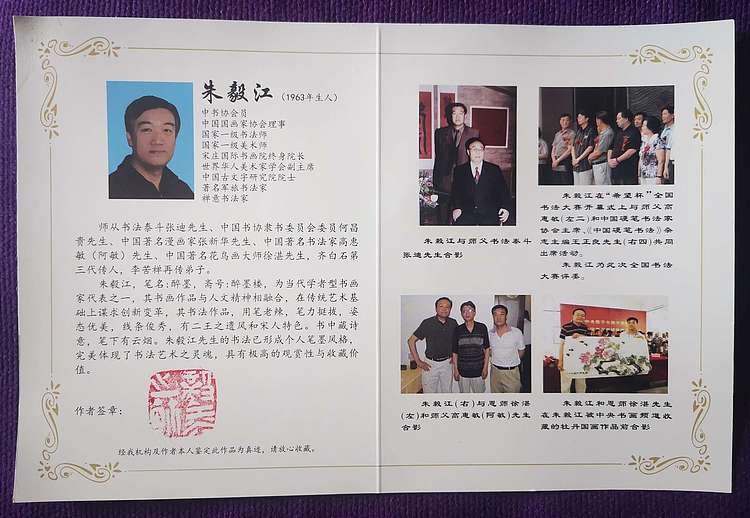 朱毅江（1963年生人）
中书协会员
中国国画家协会理事
国家一级书法师
国家一级美术师
宋庄国际书画院终身院长
世界华人美术家学会副主席
中国古文字研究院院士
著名军旅书法家
禅意书法家
师从书法泰斗张迪先生、中国书协隶书委员会委员何昌
贵先生、中国著名漫画家张新华先生、中国著名书法家高惠
敏（阿敏）先生、中国著名花鸟画大师徐湛先生，齐白石第
三代传人，李苦禅再传弟子。
朱毅江，笔名：醉墨，斋号：醉墨楼，为当代学者型书画
家代表之一，其书画作品与人文精神相融合，在传统艺术基
础上谋求创新变革，其书法作品，用笔老辣，笔力挺拔，姿
态优美，线条俊秀，有二王之遗风和宋人特色。书中藏诗
意，笔下有云烟。朱毅江先生的书法已形成个人笔墨风格，
完美体现了书法艺术之灵魂，具有极高的观赏性与收藏价
值。
作者签章：
经我机构及作者本人鉴定此作品为真迹，请放心收藏。
朱毅江与师父书法泰斗
张迪先生合影
朱毅江在“希望杯”全国
书法大赛开幕式上与师父高
惠敏（左二）和中国硬笔书法家
协会主席、《中国硬笔书法》杂
志主编王正良先生（右四）共同
出席活动。
朱毅江为此次全国书法
大赛评委。
朱毅江（右）与恩师徐湛
（左）和师父高惠敏（阿敏）先生
合影
朱毅江和恩师徐湛先生
在朱毅江被中央书画频道收
藏的牡丹国画作品前合影